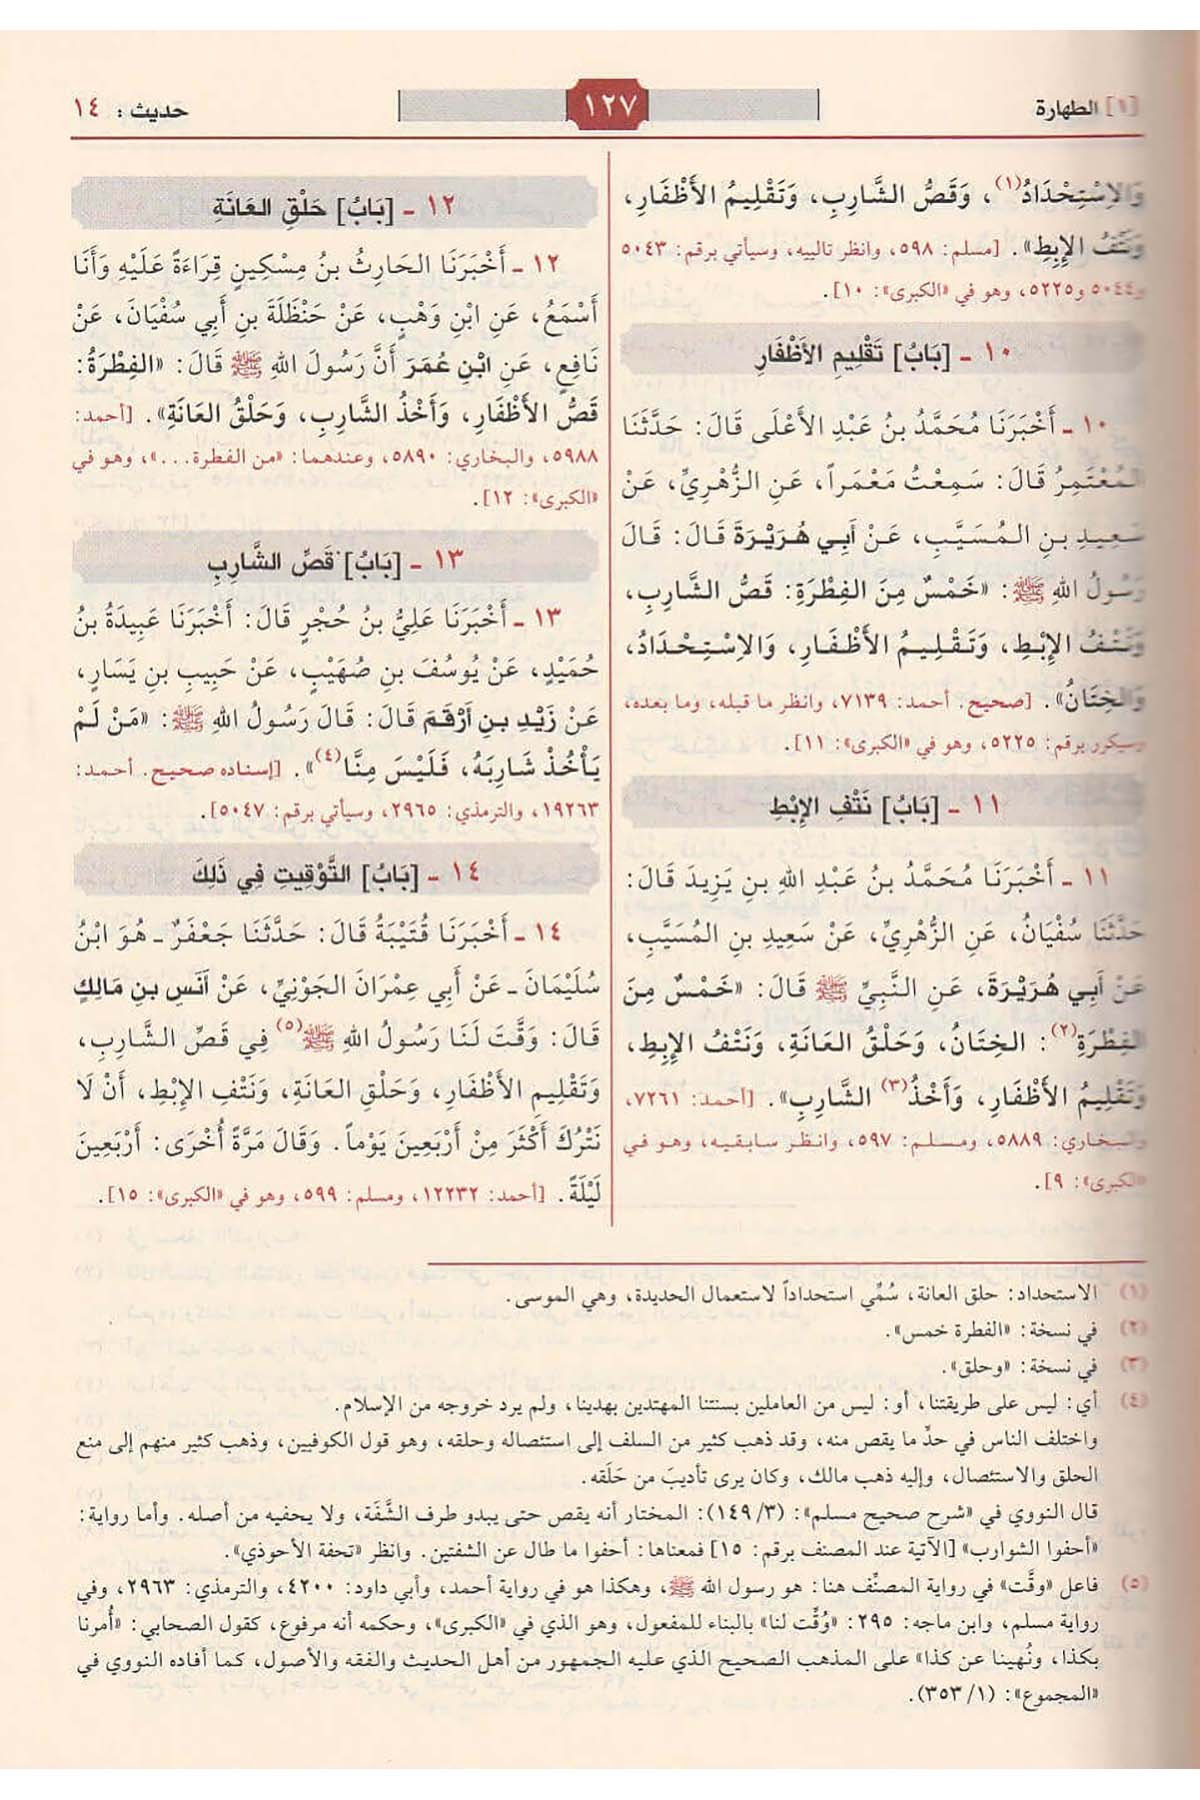 [١] الطهارة
١٢٧
حديث : ١٤
وَالِاسْتِحْدَادُ(١)، وَقَصُّ الشَّارِبِ، وَتَقْلِيمُ الأَظْفَارِ،
وَنَتْفُ الإِبِطِ». [مسلم: ٥٩٨، وانظر تالييه، وسيأتي برقم: ٥٠٤٣
و٥٠٤٤ و٥٢٢٥، وهو في «الكبرى»: ١٠].
١٠ - [بَابُ] تَقْلِيمِ الأَظْفَارِ
١٠ - أَخْبَرَنَا مُحَمَّدُ بنُ عَبْدِ الأَعْلَى قَالَ: حَدَّثَنَا
المُعْتَمِرُ قَالَ: سَمِعْتُ مَعْمَراً، عَنِ الزُّهْرِيِّ، عَنْ
سَعِيدِ بنِ المُسَيَّبِ، عَنْ أَبِي هُرَيْرَةَ قَالَ: قَالَ
رَسُولُ اللهِ ﷺ: «خَمْسٌ مِنَ الفِطْرَةِ: قَصُّ الشَّارِبِ،
وَنَتْفُ الإِبْطِ، وَتَقْلِيمُ الأَظْفَارِ، وَالِاسْتِحْدَادُ،
وَالخِتَانُ». [صحيح. أحمد: ٧١٣٩، وانظر ما قبله، وما بعده،
وسيكرر برقم: ٥٢٢٥، وهو في «الكبرى»: ١١].
١١ - [بَابُ] نَتْفِ الإِبْطِ
١١ - أَخْبَرَنَا مُحَمَّدُ بنُ عَبْدِ اللهِ بنِ يَزِيدَ قَالَ:
حَدَّثَنَا سُفْيَانُ، عَنِ الزُّهْرِيِّ، عَنْ سَعِيدِ بنِ المُسَيَّبِ،
عَنْ أَبِي هُرَيْرَةَ، عَنِ النَّبِيِّ ﷺ قَالَ: «خَمْسٌ مِنَ
الفِطْرَةِ(٢): الخِتَانُ، وَحَلْقُ العَانَةِ، وَنَتْفُ الإِبِطِ،
وَتَقْلِيمُ الأَظْفَارِ، وَأَخْذُ(٣) الشَّارِبِ». [أحمد: ٧٢٦١،
والبخاري: ٥٨٨٩، ومسلم: ٥٩٧، وانظر سابقيه، وهو في
«الكبرى»: ٩].
١٢ - [بَابُ] حَلْقِ العَانَةِ
١٢ - أَخْبَرَنَا الحَارِثُ بنُ مِسْكِينٍ قِرَاءَةً عَلَيْهِ وَأَنَا
أَسْمَعُ، عَنِ ابْنِ وَهْبٍ، عَنْ حَنْظَلَةَ بنِ أَبِي سُفْيَانَ، عَنْ
نَافِعٍ، عَنِ ابْنِ عُمَرَ أَنَّ رَسُولَ اللهِ ﷺ قَالَ: «الفِطْرَةُ:
قَصُّ الأَظْفَارِ، وَأَخْذُ الشَّارِبِ، وَحَلْقُ العَانَةِ». [أحمد:
٥٩٨٨، والبخاري: ٥٨٩٠، وعندهما: «من الفطرة...»، وهو في
«الكبرى»: ١٢].
١٣ - [بَابُ] قَصِّ الشَّارِبِ
١٣ - أَخْبَرَنَا عَلِيُّ بنُ حُجْرٍ قَالَ: أَخْبَرَنَا عَبِيدَةُ بنُ
حُمَيْدٍ، عَنْ يُوسُفَ بنِ صُهَيْبٍ، عَنْ حَبِيبِ بنِ يَسَارٍ،
عَنْ زَيْدِ بنِ أَرْقَمَ قَالَ: قَالَ رَسُولُ اللهِ ﷺ: «مَنْ لَمْ
يَأْخُذْ شَارِبَهُ، فَلَيْسَ مِنَّا(٤)». [إسناده صحيح. أحمد:
١٩٢٦٣، والترمذي: ٢٩٦٥، وسيأتي برقم: ٥٠٤٧].
١٤ - [بَابُ] التَّوْقِيتِ فِي ذَلِكَ
١٤ - أَخْبَرَنَا قُتَيْبَةُ قَالَ: حَدَّثَنَا جَعْفَرٌ - هُوَ ابْنُ
سُلَيْمَانَ - عَنْ أَبِي عِمْرَانَ الجَوْنِيِّ، عَنْ أَنَسِ بنِ مَالِكٍ
قَالَ: وَقَّتَ لَنَا رَسُولُ اللهِ ﷺ(٥) فِي قَصِّ الشَّارِبِ،
وَتَقْلِيمِ الأَظْفَارِ، وَحَلْقِ العَانَةِ، وَنَتْفِ الإِبْطِ، أَنْ لَا
نَتْرُكَ أَكْثَرَ مِنْ أَرْبَعِينَ يَوْماً. وَقَالَ مَرَّةً أُخْرَى: أَرْبَعِينَ
لَيْلَةً. [أحمد: ١٢٢٣٢، ومسلم: ٥٩٩، وهو في «الكبرى»: ١٥].
(١) الاستحداد: حلق العانة، سُمِّي استحداداً لاستعمال الحديدة، وهي الموسى.
(٢) في نسخة: «الفطرة خمس».
(٣) في نسخة: «وحلق».
(٤) أي: ليس على طريقتنا، أو: ليس من العاملين بسنتنا المهتدين بهدينا، ولم يرد خروجه من الإسلام.
واختلف الناس في حدِّ ما يقص منه، وقد ذهب كثير من السلف إلى استئصاله وحلقه، وهو قول الكوفيين، وذهب كثير منهم إلى منع
الحلق والاستئصال، وإليه ذهب مالك، وكان يرى تأديبَ من حَلَقه.
قال النووي في «شرح صحيح مسلم»: (٣/ ١٤٩): المختار أنه يقص حتى يبدو طرف الشَّفَة، ولا يحفيه من أصله. وأما رواية:
«أحفوا الشوارب» [الآتية عند المصنف برقم: ١٥] فمعناها: أحفوا ما طال عن الشفتين. وانظر «تحفة الأحوذي».
(٥) فاعل «وقَّت» في رواية المصنِّف هنا: هو رسول الله ﷺ، وهكذا هو في رواية أحمد، وأبي داود: ٤٢٠٠، والترمذي: ٢٩٦٣، وفي
رواية مسلم، وابن ماجه: ٢٩٥: «وُقِّت لنا» بالبناء للمفعول، وهو الذي في «الكبرى»، وحكمه أنه مرفوع، كقول الصحابي: «أُمرنا
بكذا، ونُهينا عن كذا» على المذهب الصحيح الذي عليه الجمهور من أهل الحديث والفقه والأصول، كما أفاده النووي في
«المجموع»: (١/ ٣٥٣).